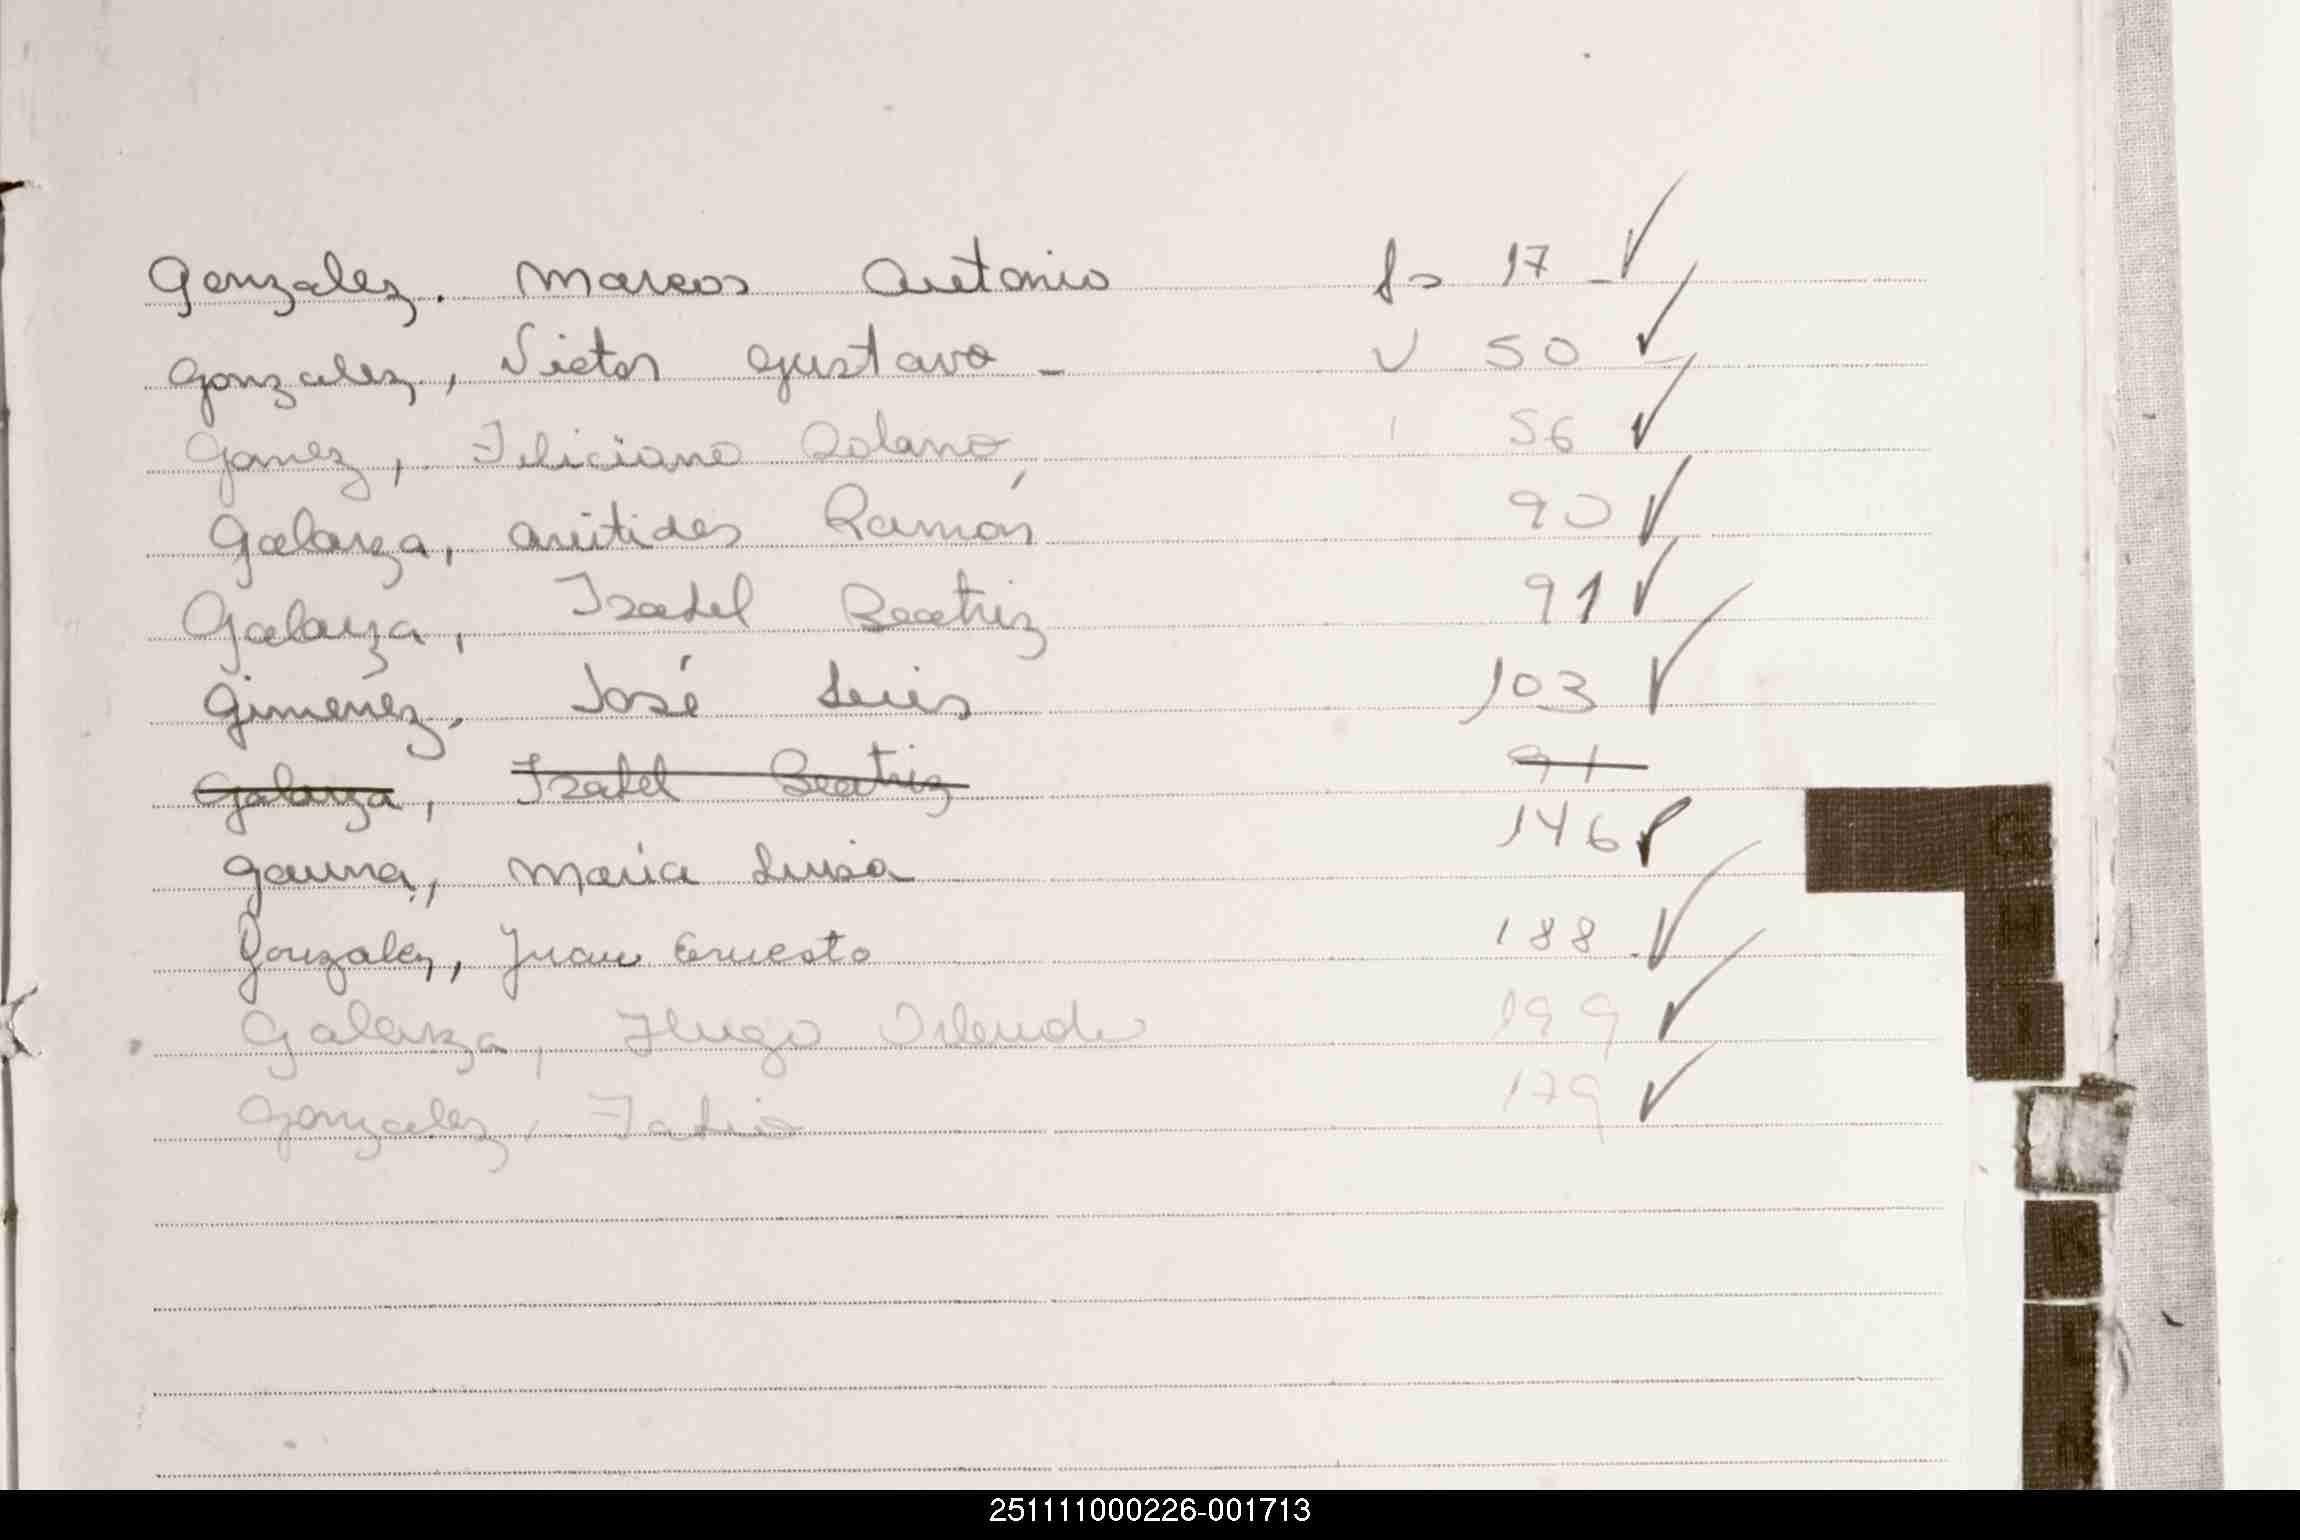 Gonzalez. Marcos Antonio fs 17 ✓
Gonzalez, Victor Gustavo - 50 ✓
Gomez, Feliciano Solano 56 ✓
Galarza, Aristides Ramón 90 ✓
Galarza, Izabel Beatriz 91 ✓
Gimenez, José Luis 103 ✓
Galarza, Izabel Beatriz 91
Gauna, María Luisa 146 ✓
Gonzalez, Juan Ernesto 188 ✓
Galarza, Hugo Orlando 199 ✓
Gonzalez, Fabio 179 ✓
G
H
I
K
L
251111000226-001713